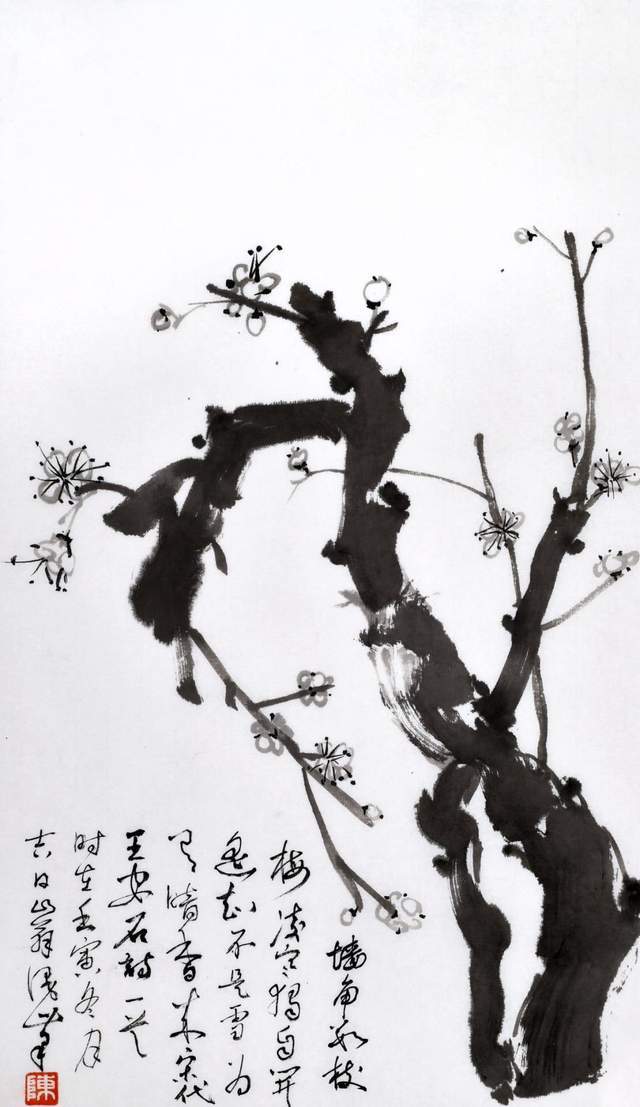 墙角数枝
梅凌寒独自开
遥知不是雪为
有暗香来宋代
王安石诗一首
时在壬寅冬月
吉日
陳